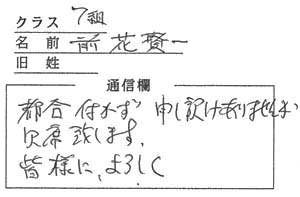 クラス 7組
名前 前花賢一
旧姓
通信欄
都合付かず 申し訳けありませんが
欠席致します。
皆様に、よろしく